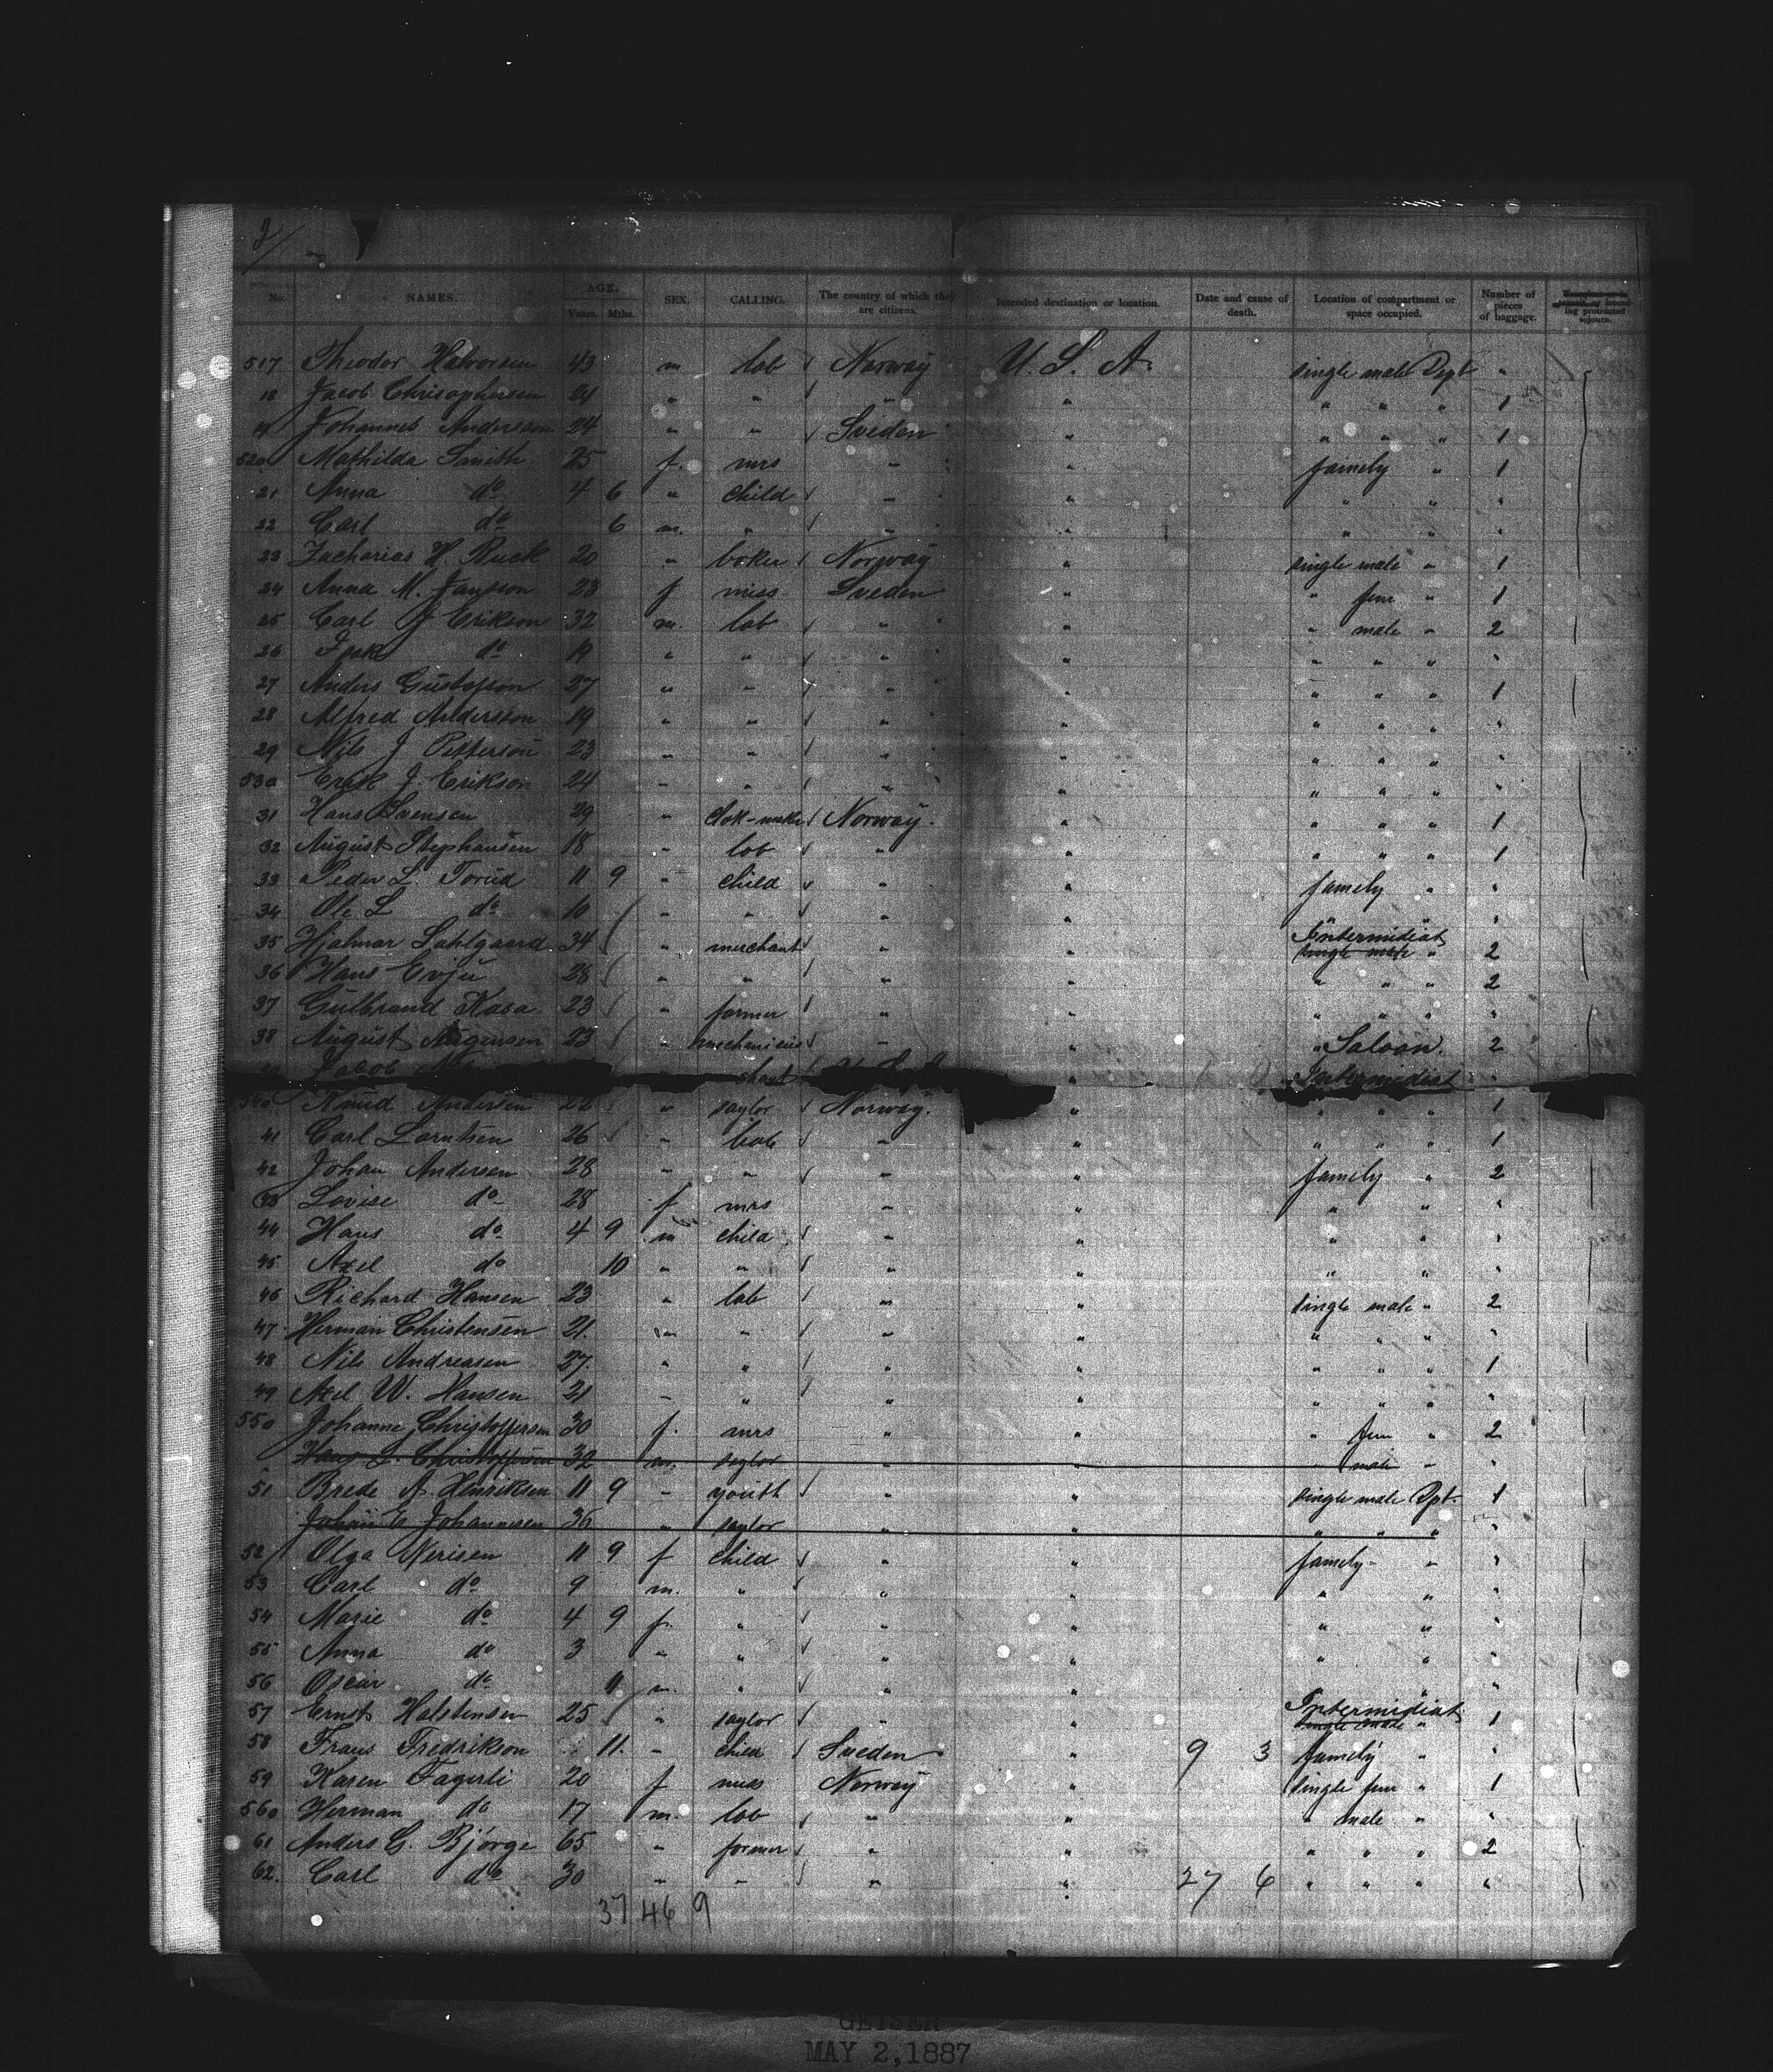 2/
No. NAMES. AGE. Years. Mths. SEX. CALLING. The country of which they are citizens. Intended destination or location. Date and cause of death. Location of compartment or space occupied. Number of pieces of baggage. ing protracted sojourn.
517 Theodor Halvorsen 43 m lab Norway U.S.A. single male Dept "
18 Jacob Chrisophersen 24 " " " " " " " 1
19 Johannes Andersson 24 " " Sveden " " " " 1
520 Mathilda Smith 25 f. mrs " " famely " 1
21 Anna do 4 6 " child " " " " "
22 Carl do 6 m. " " " " " "
23 Zacharias H. Ruck 20 " boker Norway " single male " 1
24 Anna M. Jansson 23 f miss Sveden " " fem " 1
25 Carl J Erikson 32 m. lab " " " male " 2
26 do 19 " " " " " " " "
27 Anders Gustafson 27 " " " " " " " 1
28 Alfred Andersson 19 " " " " " " " "
29 Nils J Petterson 23 " " " " " " " "
530 Erik J. Erikson 24 " " " " " " " "
31 Hans Svensen 29 " clok-maker Norway. " " " " 1
32 August Stephansen 18 " lab " " " " " 1
33 Peder L. Torud 11 9 " child " " famely " "
34 Ole L do 10 " " " " "
35 Hjalmar Sahlgaard 34 " merchant " " Intermidiat single male " 2
36 Hans Evju 28 " " " " " " " 2
37 Gulbrand Kasa 23 " former " " " " " "
38 August 23 " " " " Saloon. 2
Jacob Intermidiat "
540 Knud Andersen " saylor Norway. " " " " 1
41 Carl Larntsen 26 " lab " " " " " 1
42 Johan Andersen 28 " " " " famely " 2
43 Lovise do 28 f mrs " " " " "
44 Hans do 4 9 m child " " " " "
45 Axel do 10 " " " " " " "
46 Richard Hansen 23 " lab " " single male " 2
47 Herman Christensen 21. m " " " " " " "
48 Nils Andreasen 27. " " " " " " " 1
49 Axel W. Hansen 21 " " " " " " " "
550 Johanne Christoffersen 30 f. mrs " " " fem " 2
Hans L. Christoffersen 32 m. saylor " " " male " "
51 Brede A. Henriksen 11 9 " youth " " single male Dpt. 1
Johan E Johannesen 36 " saylor " " " " " "
52 Olga Nerisen 11 9 f child " " famely " "
53 Carl do 9 m. " " " " " "
54 Marie do 4 9 f. " " " " " "
55 Anna do 3 " " " " " " "
56 Oscar do 11 m. " " " " "
57 Ernst Halstensen 25 " saylor " " Intermidiat single male " 1
58 Frans Fredrikson 11. " child Sveden " 9 3 famely " "
59 Karen Fagerli 20 f miss Norway " single fem " 1
560 Herman do 17 m. lab " " " male " "
61 Anders G. Bjørge 65 " former " " " " " 2
62. Carl do 30 " " " " 27 6 " " " "
37 46 9
GEISER
MAY 2,1887